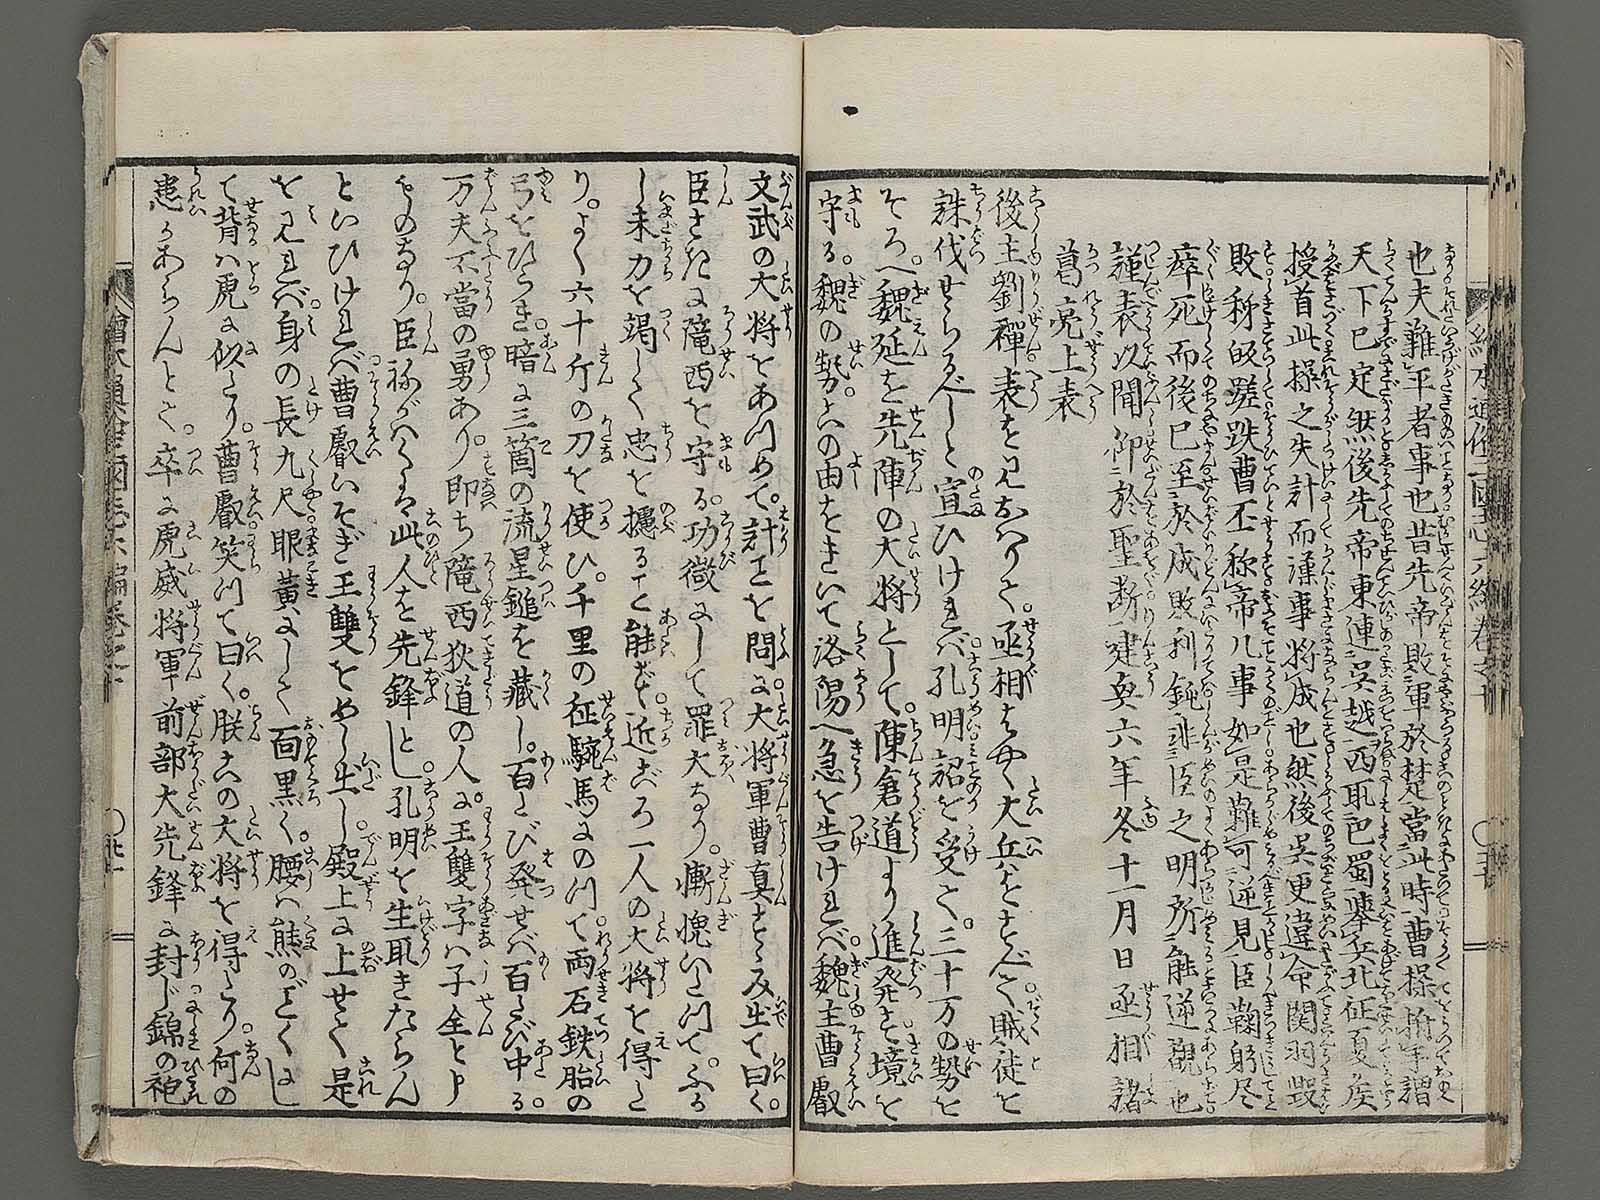 也夫難平者事也昔先帝敗軍於楚當此時曹操拊手謂
天下已定然後先帝東連吳越西取巴蜀擧兵北征夏侯
授首此操之失計而漢事將成也然後吳更違命関羽毀
敗秭皈蹉跌曹丕称帝凡事如是難可逆見臣鞠躬尽
瘁死而後已至於成敗利鈍非臣之明所能逆覩也
謹表以聞仰於聖断建興六年冬十一月日丞相諸
葛亮上表
後主劉禪表を見おはりて。丞相はやく大兵をすべて賊徒を
誅伐せらるべしと宣ひければ孔明詔を受て。三十万の勢を
そろへ魏延を先陣の大将として。陳倉道より進発す境を
守る。魏の勢。この由をきいて洛陽へ急を告ければ魏主曹叡
文武の大将をあつめて。計を問ふ。大将軍曹真すゝみ出て曰く。
臣さきに隴西を守る。功微にして罪大なり。慚愧いたつて。ふか
し未力を竭して忠を攄ること能ず。近ごろ一人の大将を得た
り。よく六十斤の刀を使ひ。千里の征騕馬にのつて両石鉄胎の
弓をひらき。暗に三箇の流星鎚を藏し。百たび発せば百たび中る。
万夫不當の勇あり。即ち隴西狄道の人。王雙字ハ子全と
ものなり。臣ねがはくは此人を先鋒とし孔明を生取きたらん
といひければ曹叡いそぎ王雙をめし出し。殿上に上せて是
を見れば身の長九尺眼黄にして面黒く。腰ハ熊のごとくにし
て背ハ虎に似たり。曹叡笑つて曰く。朕この大将を得たり。何の
患かあらんとて。卒に虎威将軍前部大先鋒に封じ錦の袍